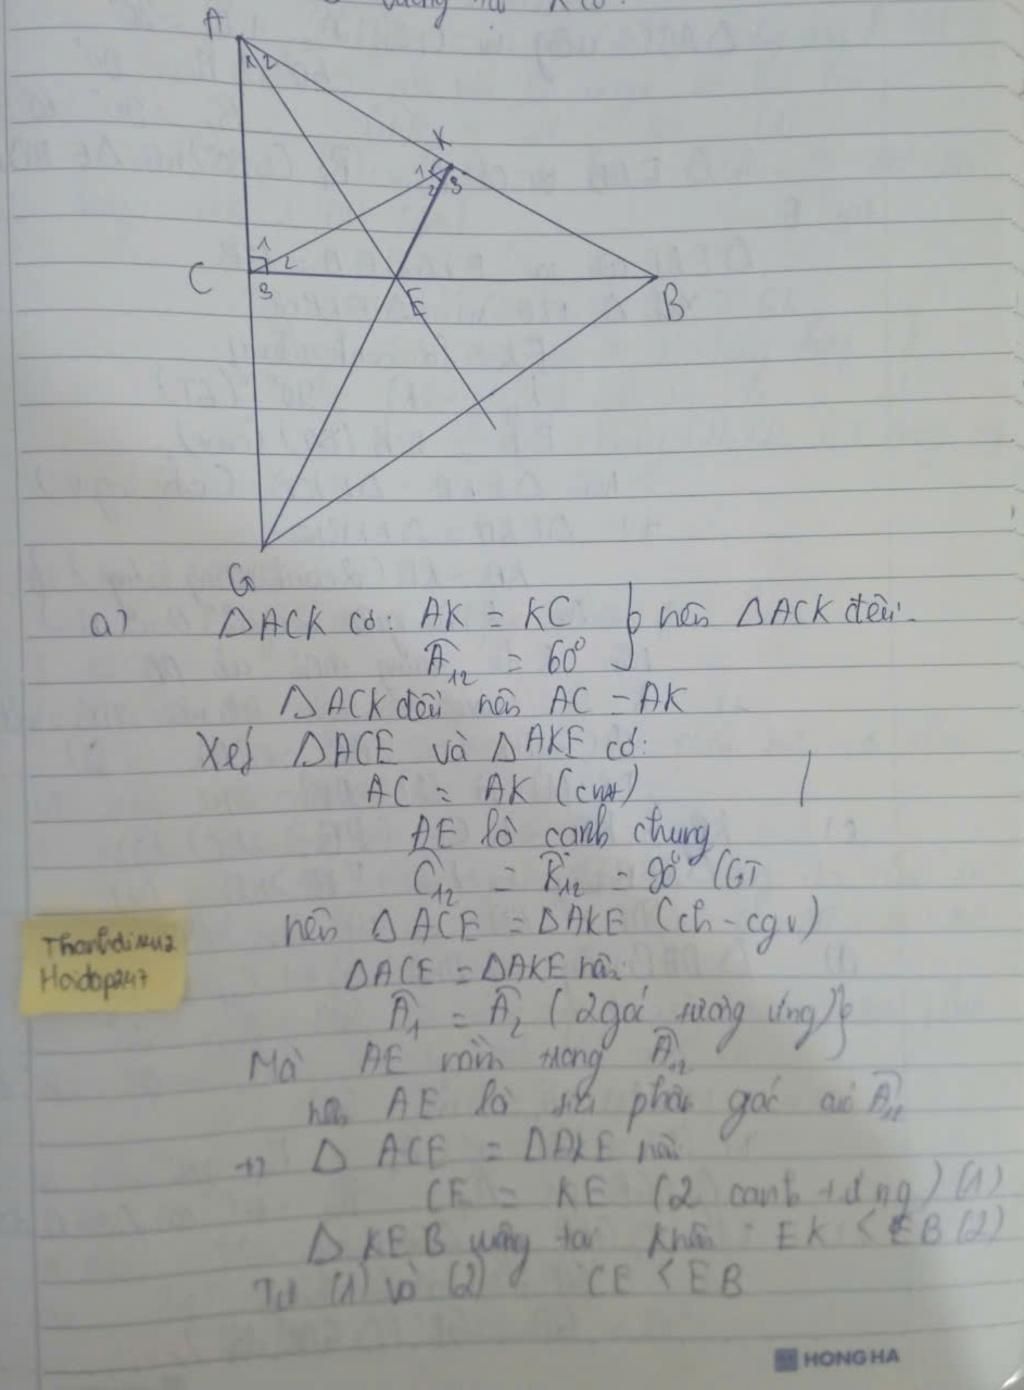 A
1 2
K
1
2 3
1
C 2
3
E
B
G
a) ΔACK có: AK = KC
Â12 = 60° } nên ΔACK đều.
ΔACK đều nên AC = AK
Xét ΔACE và ΔAKE có:
AC = AK (cmt)
AE là cạnh chung
Ĉ12 = K̂12 = 90° (GT
nên ΔACE = ΔAKE (ch-cgv)
Thanhdinuz
Hoidap247
ΔACE = ΔAKE nên:
Â1 = Â2 (2 góc tương ứng)}
Mà AE nằm trong Â12
nên AE là tia phân góc của Â12
+) Δ ACE = ΔAKE nên
CE = KE (2 cạnh t.ứng) (1)
Δ KEB vuông tại K nên EK < EB (2)
Từ (1) và (2) CE < EB
HONG HA